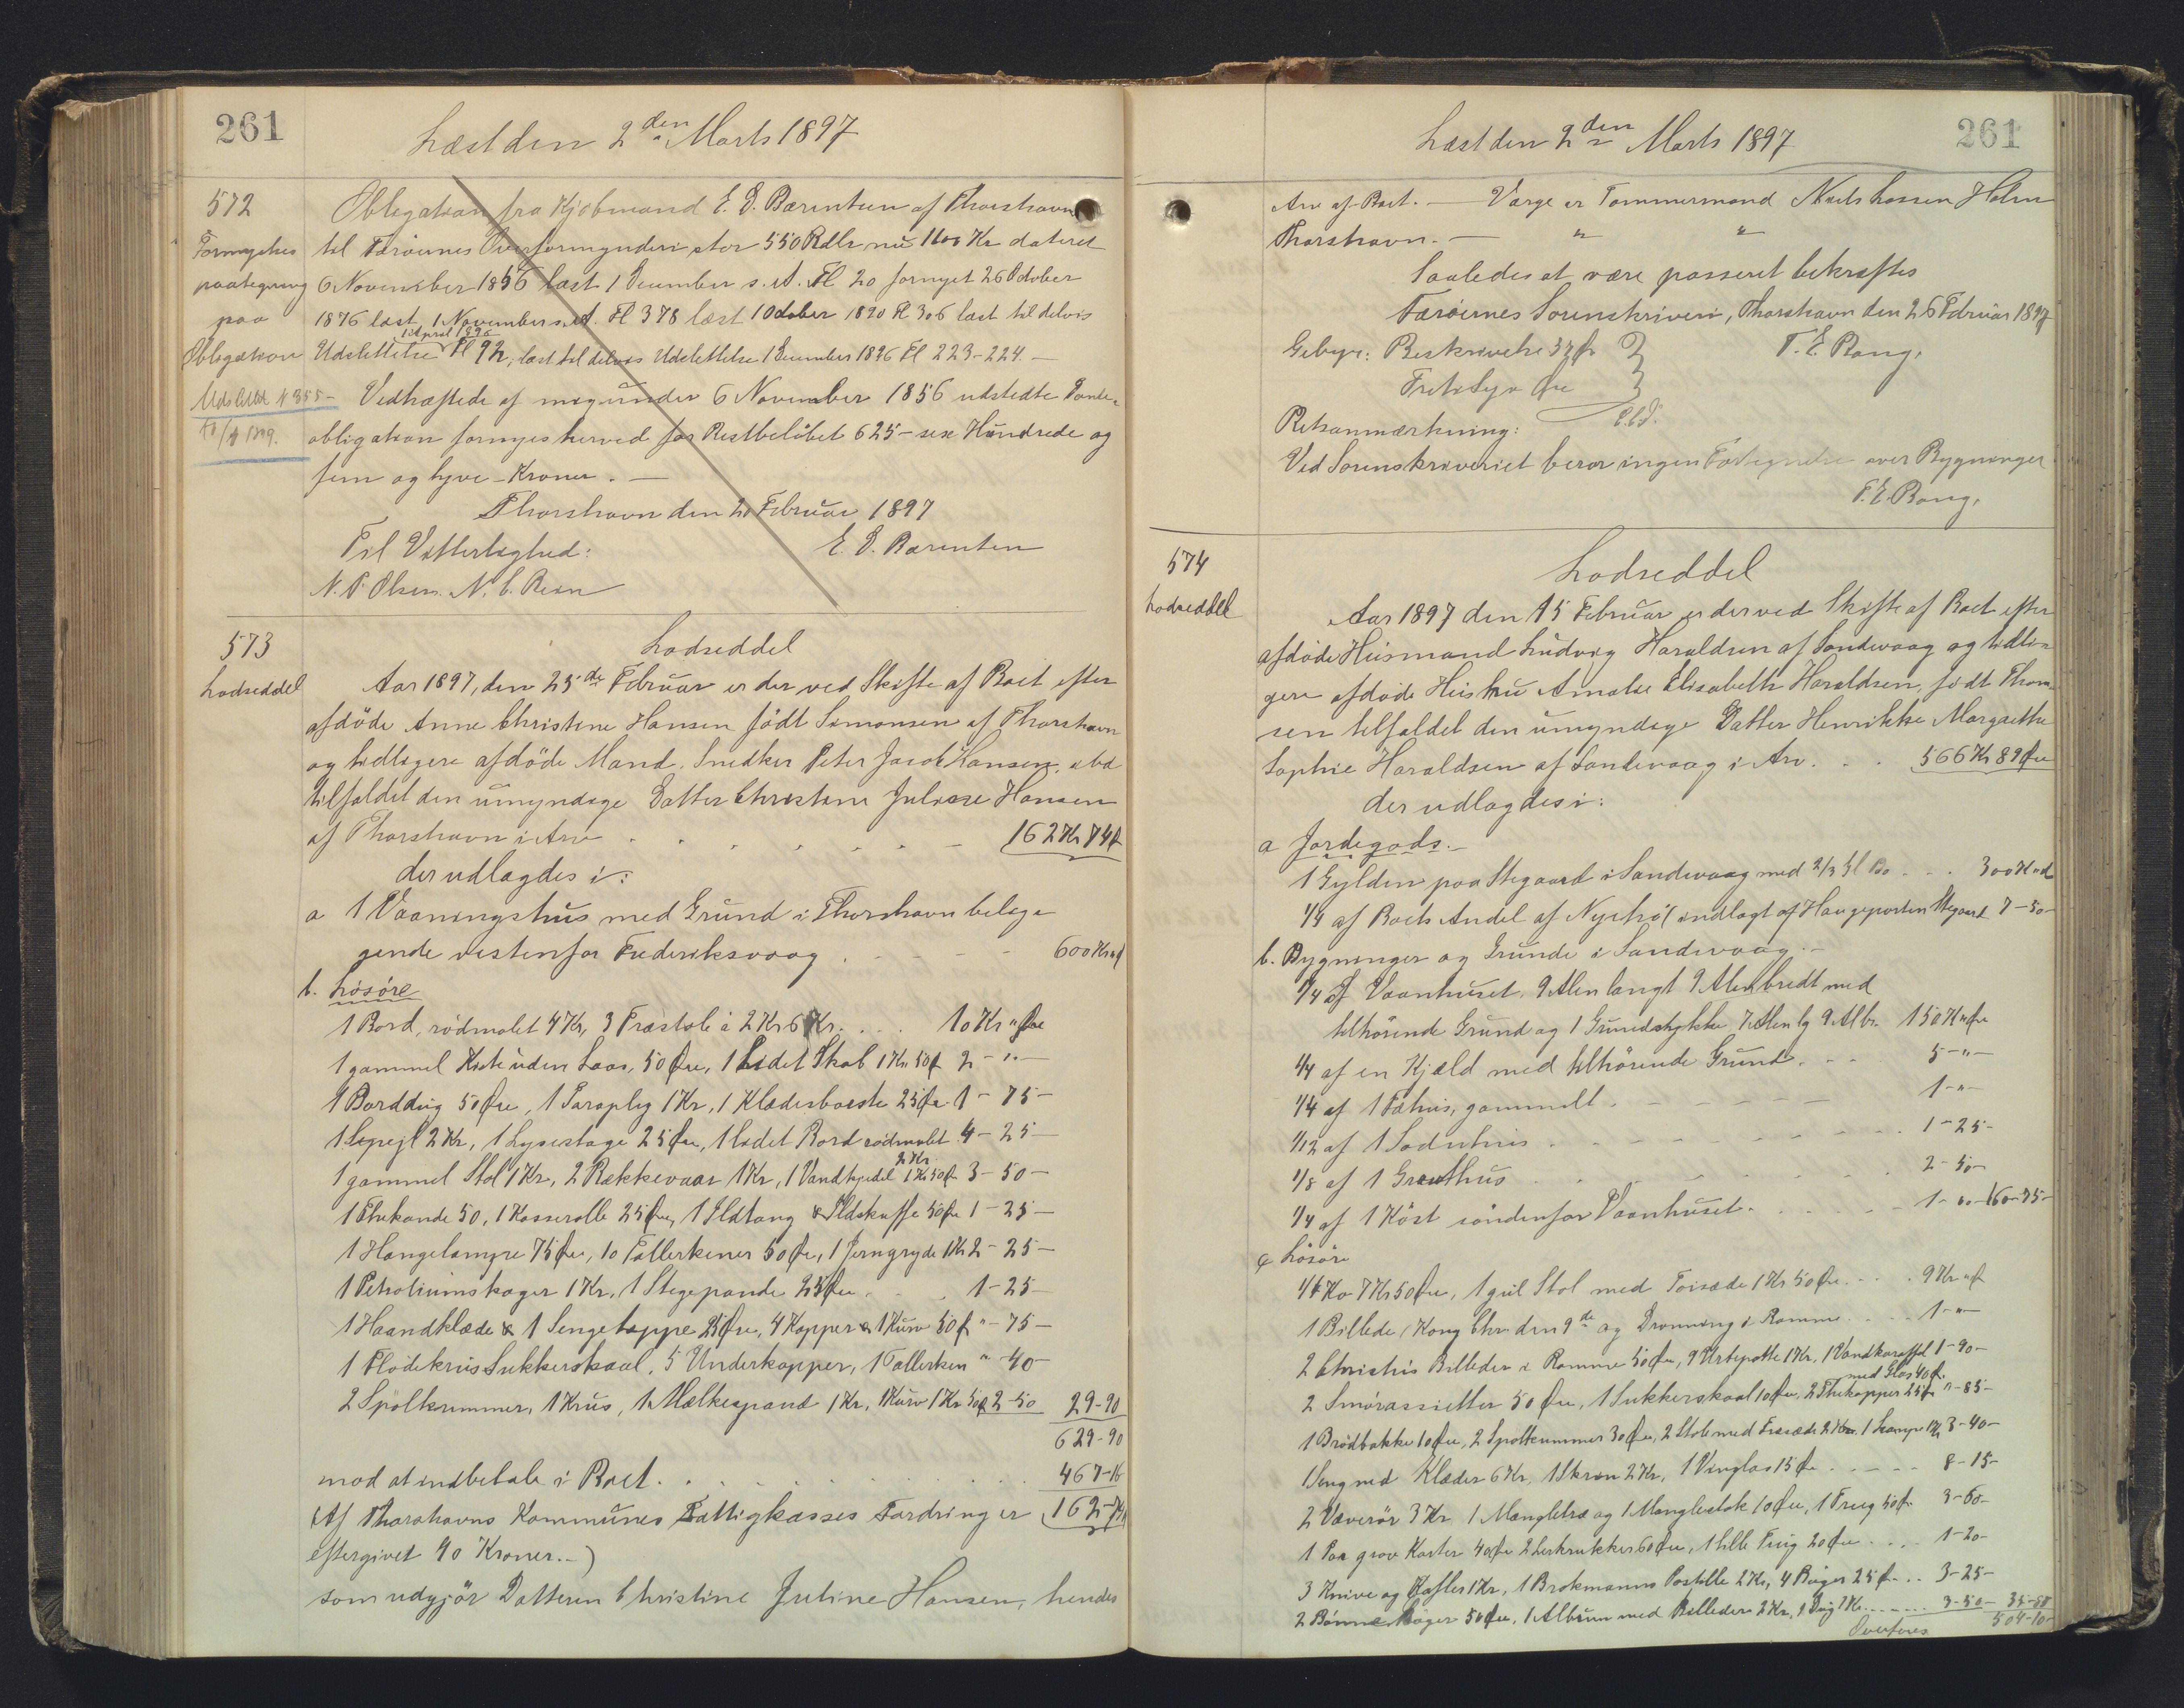 261
Læst den 2den Marts 1897
572
Fornyelses
paategning
paa
Obligation
Udslettet # 355-
Obligation fra Kjöbmand E. D. Bærentsen af Thorshavn
til Færöernes Overformynderi stor 550 Rdlr nu 1100 Kr dateret
6 November 1856 læst 1 December s. A. Fl 20 fornyet 26 October
1876 læst 1 November s. A. Fl 378 læst 1 October 1890 Fl 306 læst til delvis
1 April 1896
Udslettelse Fl 92, læst til delvis Udslettelse 1 December 1896 Fl 223-224. —
Vedhæftede af mig under 6 November 1856 udstedte Pante-
obligation fornyes herved for Restbelöbet 625 - sex Hundrede og
fem og tyve - Kroner. —
Thorshavn den 20 Februar 1897
Til Vitterlighed: E. D. Bærentsen
N. P. Olsen. N. C. Rein
573
Lodseddel
Lodseddel
Aar 1897, den 25de Februar er der ved Skifte af Boet efter
afdöde Anne Christine Hansen födt Simonsen af Thorshavn
og tidligere afdöde Mand, Snedker Peter Jacob Hansen, ibd
tilfaldet den umyndige Datter Christine Juliane Hansen
af Thorshavn i Arv 162 Kr 74 Ø
der udlagdes i:
a 1 Vaaningshus med Grund i Thorshavn belig-
gende vestenfor Frederiksvaag 600 Kr " Ø
b. Lösöre
1 Bord, rödmalet 4 Kr, 3 Træstole à 2 Kr 6 Kr 10 Kr " Øre
1 gammel Kiste uden Laas, 50 Øre, 1 Lidet Skab 1 Kr 50 Ø 2 - " —
1 Borddug 50 Øre, 1 Paraply 1 Kr, 1 Klædesbørste 25 Ø 1 - 75 —
1 Spejl 2 Kr, 1 Lysestage 25 Øre, 1 lidet Bord rödmalet 4 - 25 —
2 Kr
1 gammel Stol 1 Kr, 2 Rækkevaar 1 Kr, 1 Vandkjedel 1 Kr 50 Ø 3 - 50 —
1 Thekande 50, 1 Kasserolle 25 Øre, 1 Ildtang & Ildskuffe 50 Øre 1 - 25 —
1 Hængelampe 75 Øre, 10 Tallerkener 50 Øre, 1 Jerngryde 1 Kr 2 - 25 —
1 Petroliumskoger 1 Kr, 1 Stegepande 25 Øre 1 - 25
1 Haandklæde & 1 Sengetæppe 25 Øre, 4 Kopper & 1 Kurv 50 Ø " - 75 —
1 Flödekrus Sukkerskaal, 5 Underkopper, 1 Tallerken " - 40 -
2 Spölkummer, 1 Krus, 1 Mælkespand 1 Kr, 1 Kurv 1 Kr 50 Ø 2 - 50 29-90
629-90
mod at indbetale i Boet. 467-16
(Af Thorshavns Kommunes Fattigkasses Fordring er 162-74
eftergivet 90 Kroner. -)
som udgjör Datteren Christine Juline Hansen, hendes
Læst den 2den Marts 1897
261
Arv af Boet. — Værge er Tømmermand Niels Hansen Holm
Thorshavn. — " "
Saaledes at være passeret bekræftes
Færöernes Sorenskriveri, Thorshavn den 26 Februar 1897
Gebyr: Beskrivelse 32 Ø T. E. Bang.
Retsanmærkning:
Ved Sorenskriveriet beror ingen Fortegnelse over Bygninger
T. E. Bang.
574
Lodseddel
Lodseddel
Aar 1897 den 15 Februar er der ved Skifte af Boet efter
afdöde Huismand Ludvig Haraldsen af Sandevaag og tidli-
gere afdöde Hustru Amalie Elisabeth Haraldsen, födt Thom-
sen tilfaldet den umyndige Datter Henrikke Margrethe
Sophie Haraldsen af Sandevaag i Arv. 566 Kr 89 Øre
der udlagdes i:
a Jordegods. —
1 Gylden paa Stegaard i Sandevaag med 2/3 300 Kr " Ø
1/4 af Boets Andel af Nytrö (indlagt af Haugeparten Stegaard 7 - 50 -
b. Bygninger og Grunde i Sandevaag. —
1/4 af Vaanhuset, 9 Alen langt 9 Alen bredt med
tilhörende Grund og 1 Grundstykke 7 Alen lg 9 Al br. 150 Kr " Øre
1/4 af en Kjæld med tilhörende Grund. 5 - " —
1/4 af 1 Fæhus, gammelt 1 - " —
1/12 af 1 Sodnhuis 1 - 25 -
1/8 af 1 Grauthus 2 - 50 -
1/4 af 1 Köst söndenfor Vaanhuset. 1 - " - 160-75-
c Lösöre
1/4 Ko 7 Kr 50 Øre, 1 gul Stol med Toisæde 1 Kr 50 Øre 9 Kr " Ø
1 Billede (Kong Chr den 9de og Dronning i Ramme 1 - " -
2 Christus Billeder i Ramme 50 Øre, 9 Urtepotte 1 Kr, 1 Vandkaraffel 1 - 90 -
med Glas 40 Ø
2 Smörassietter 50 Øre, 1 Sukkerskaal 10 Øre, 2 Thekopper 25 Ø " - 85 -
1 Brödbakke 10 Øre, 2 Spölkummer 30 Øre, 2 Stole med Træsæde 2 Kr. 1 Lampe 1 Kr 3 - 40 -
1 Seng med Klæder 6 Kr, 1 Skrin 2 Kr, 1 Vinglas 15 Ø 8 - 15 -
2 Væverör 3 Kr 1 Mangletræ og 1 Manglestok 10 Øre, 1 Trug 50 Ø 3 - 60 -
1 Par grov Karter 40 Øre 2 Lerkrukker 60 Øre, 1 lille Trug 20 Øre 1 - 20 -
3 Knive og Gafler 1 Kr, 1 Brokmanns Postille 2 Kr, 4 Böger 25 Ø 3 - 25 -
2 Bönneböger 50 Øre, 1 Album med Billeder 2 Kr, 1 Dug 1 Kr 3 - 50 - 35-85
Overføres 504-10-